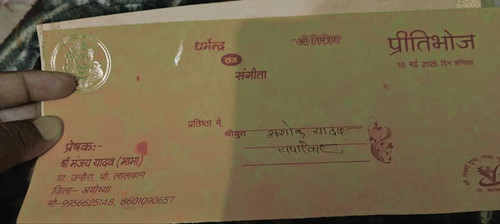 धर्मेन्द्र
संग
संगीता
प्रीतिभोज
10 मई 2025 दिन शनिवार
प्रतिष्ठा में,
श्रीयुत अशोक यादव
सपरिवार
प्रेषकः-
श्री मंजय यादव (मामा)
ग्रा. जनौरा, पो. लालबाग
जिला- अयोध्या
मो-9956625148, 8601090657